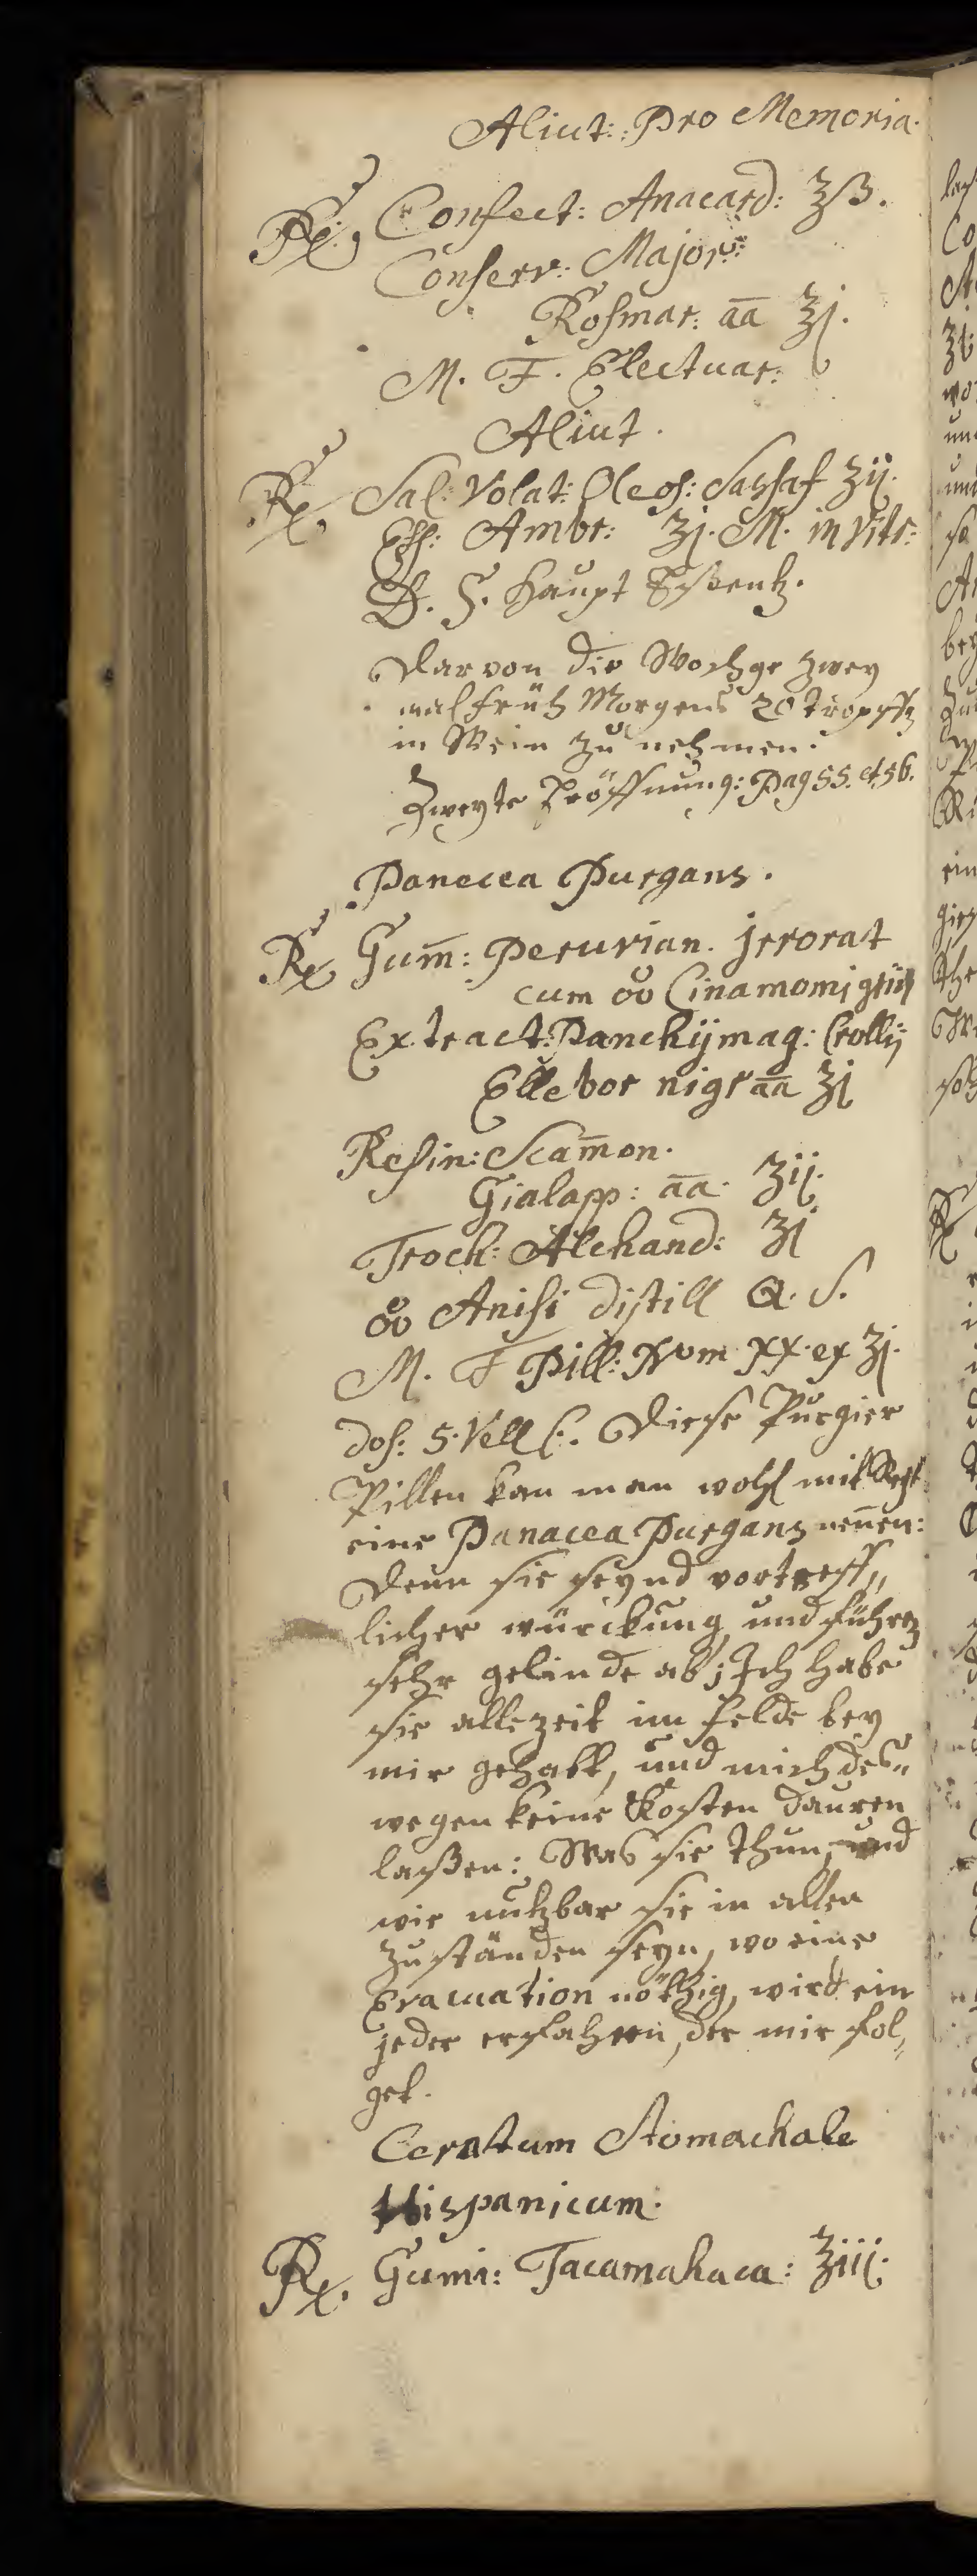 Aliut: Pro Memoria.
Rx, Confect: Anacard: ʒß.
Conserv: Major:
Rosmar: āā ʒj.
M. F. Electuar:
Aliut.
Rx, Sal: Volat: Oleos: Sassaf ʒij.
Ess: Ambr: ʒj. M. in Vitr:
D. S. Haupt Essentz.
Darvon die Wochge zwey
mal früh Morgens 20 tropffen
in Wein zu nehmen.
Zweyte Eröffnung: Pag 55. et. 56.
Panecea Purgans.
Rx Gum̄: Peruvian. jrrorat
cum oo Cinamomj
Extract: Panchijmag: Crollij
Ellebor nigr āā ʒj
Resin: Scam̄on.
Gialapp: āā. ʒij.
Troch: Alchand: ʒj
oo Anisi distill Q. S.
M. F Pill: Num XX. ex ʒj.
dos: 5. Vell 6. Diese Purgier
Pillen kan man wohl mit Recht
eine Panacea Purgans nen̄en:
denn sie seynd vortreff„
licher würckung, und führen
sehr gelinde ab; Ich habe
sie allezeit im felde bey
mir gehabt, und mich des„
wegen keine Kosten dauren
laßen: Was sie thun, und
wie nutzbar sie in allen
zuständen seyn, wo eine
Evacuation nöthig, wird ein
jeder erfahren, der mir fol„
get.
Ceratum Stomachale
Hispanicum.
Rx. Gumi: Tacamahaca: ʒiij.